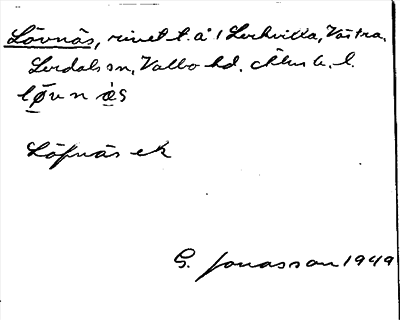 Lövnäs, rivet t. å 1 Lerkvilla, Västra.
Lerdals sn, Valbo hd. Älvsb. l.
løvnæs
Löfnäs ek
G. Jonasson 1949